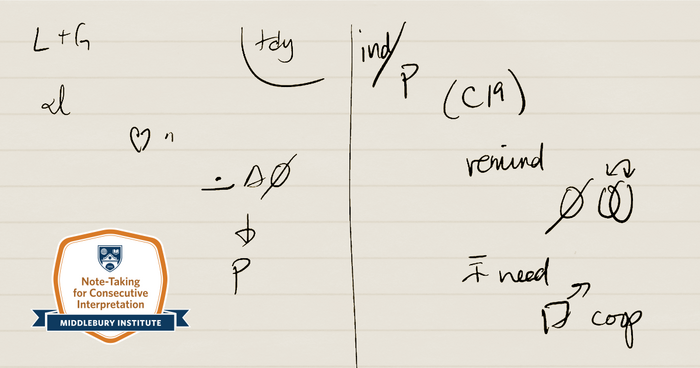 L + G
tdy
♡ "
P
Note-Taking
for Consecutive
Interpretation
MIDDLEBURY INSTITUTE
ind/
P
(C19)
remind
need
coop